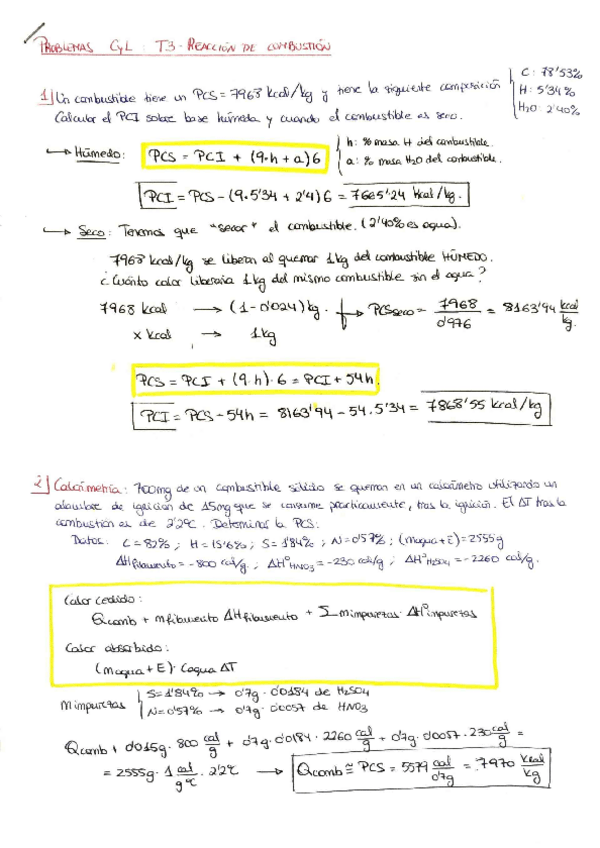 PROBLEMAS CyL T3 - REACCIÓN DE COMBUSTIÓN
1] Un combustible tiene un PCS = 7968 kcal/kg y tiene la siguiente composición
C: 78'53%
H: 5'34%
H2O: 2'40%
Calcular el PCI sobre base húmeda y cuando el combustible es seco.
Húmedo: PCS = PCI + (9·h + a)6
h: % masa H del combustible.
a: % masa H2O del combustible.
PCI = PCS - (9·5'34 + 2'4)6 = 7665'24 kcal/kg.
Seco: Tenemos que "secar" el combustible. (2'40% es agua).
7968 kcal/kg se liberan al quemar 1kg del combustible HÚMEDO.
¿Cuánto calor liberaría 1kg del mismo combustible sin el agua?
7968 kcal → (1-0'024) kg. PCSseco = 7968 / 0'976 = 8163'94 kcal/kg.
x kcal → 1kg
PCS = PCI + (9·h)·6 = PCI + 54h.
PCI = PCS - 54h = 8163'94 - 54·5'34 = 7868'55 kcal/kg
2] Calorimetría: 700mg de un combustible sólido se queman en un calorímetro utilizando un
alambre de ignición de 15mg que se consume prácticamente, tras la ignición. El ΔT tras la
combustión es de 2'2ºC. Determinar la PCS:
Datos: C = 82%; H = 15'6%; S = 1'84%; N = 0'57%; (magua + E) = 2555g
ΔHfilamento = -800 cal/g; ΔHºHNO3 = -230 cal/g; ΔHºH2SO4 = -2260 cal/g.
Calor cedido:
Qcomb + mfilamento ΔHfilamento + Σ mimpurezas · ΔHºimpurezas
Calor absorbido:
(magua + E) · Cagua ΔT
mimpurezas
S = 1'84% → 0'7g · 0'0184 de H2SO4
N = 0'57% → 0'7g · 0'0057 de HNO3
Qcomb + 0'015g · 800 cal/g + 0'7g · 0'0184 · 2260 cal/g + 0'7g · 0'0057 · 230 cal/g =
= 2555g · 1 cal/gºC · 2'2ºC → Qcomb ≅ PCS = 5579 cal/0'7g = 7970 kcal/kg